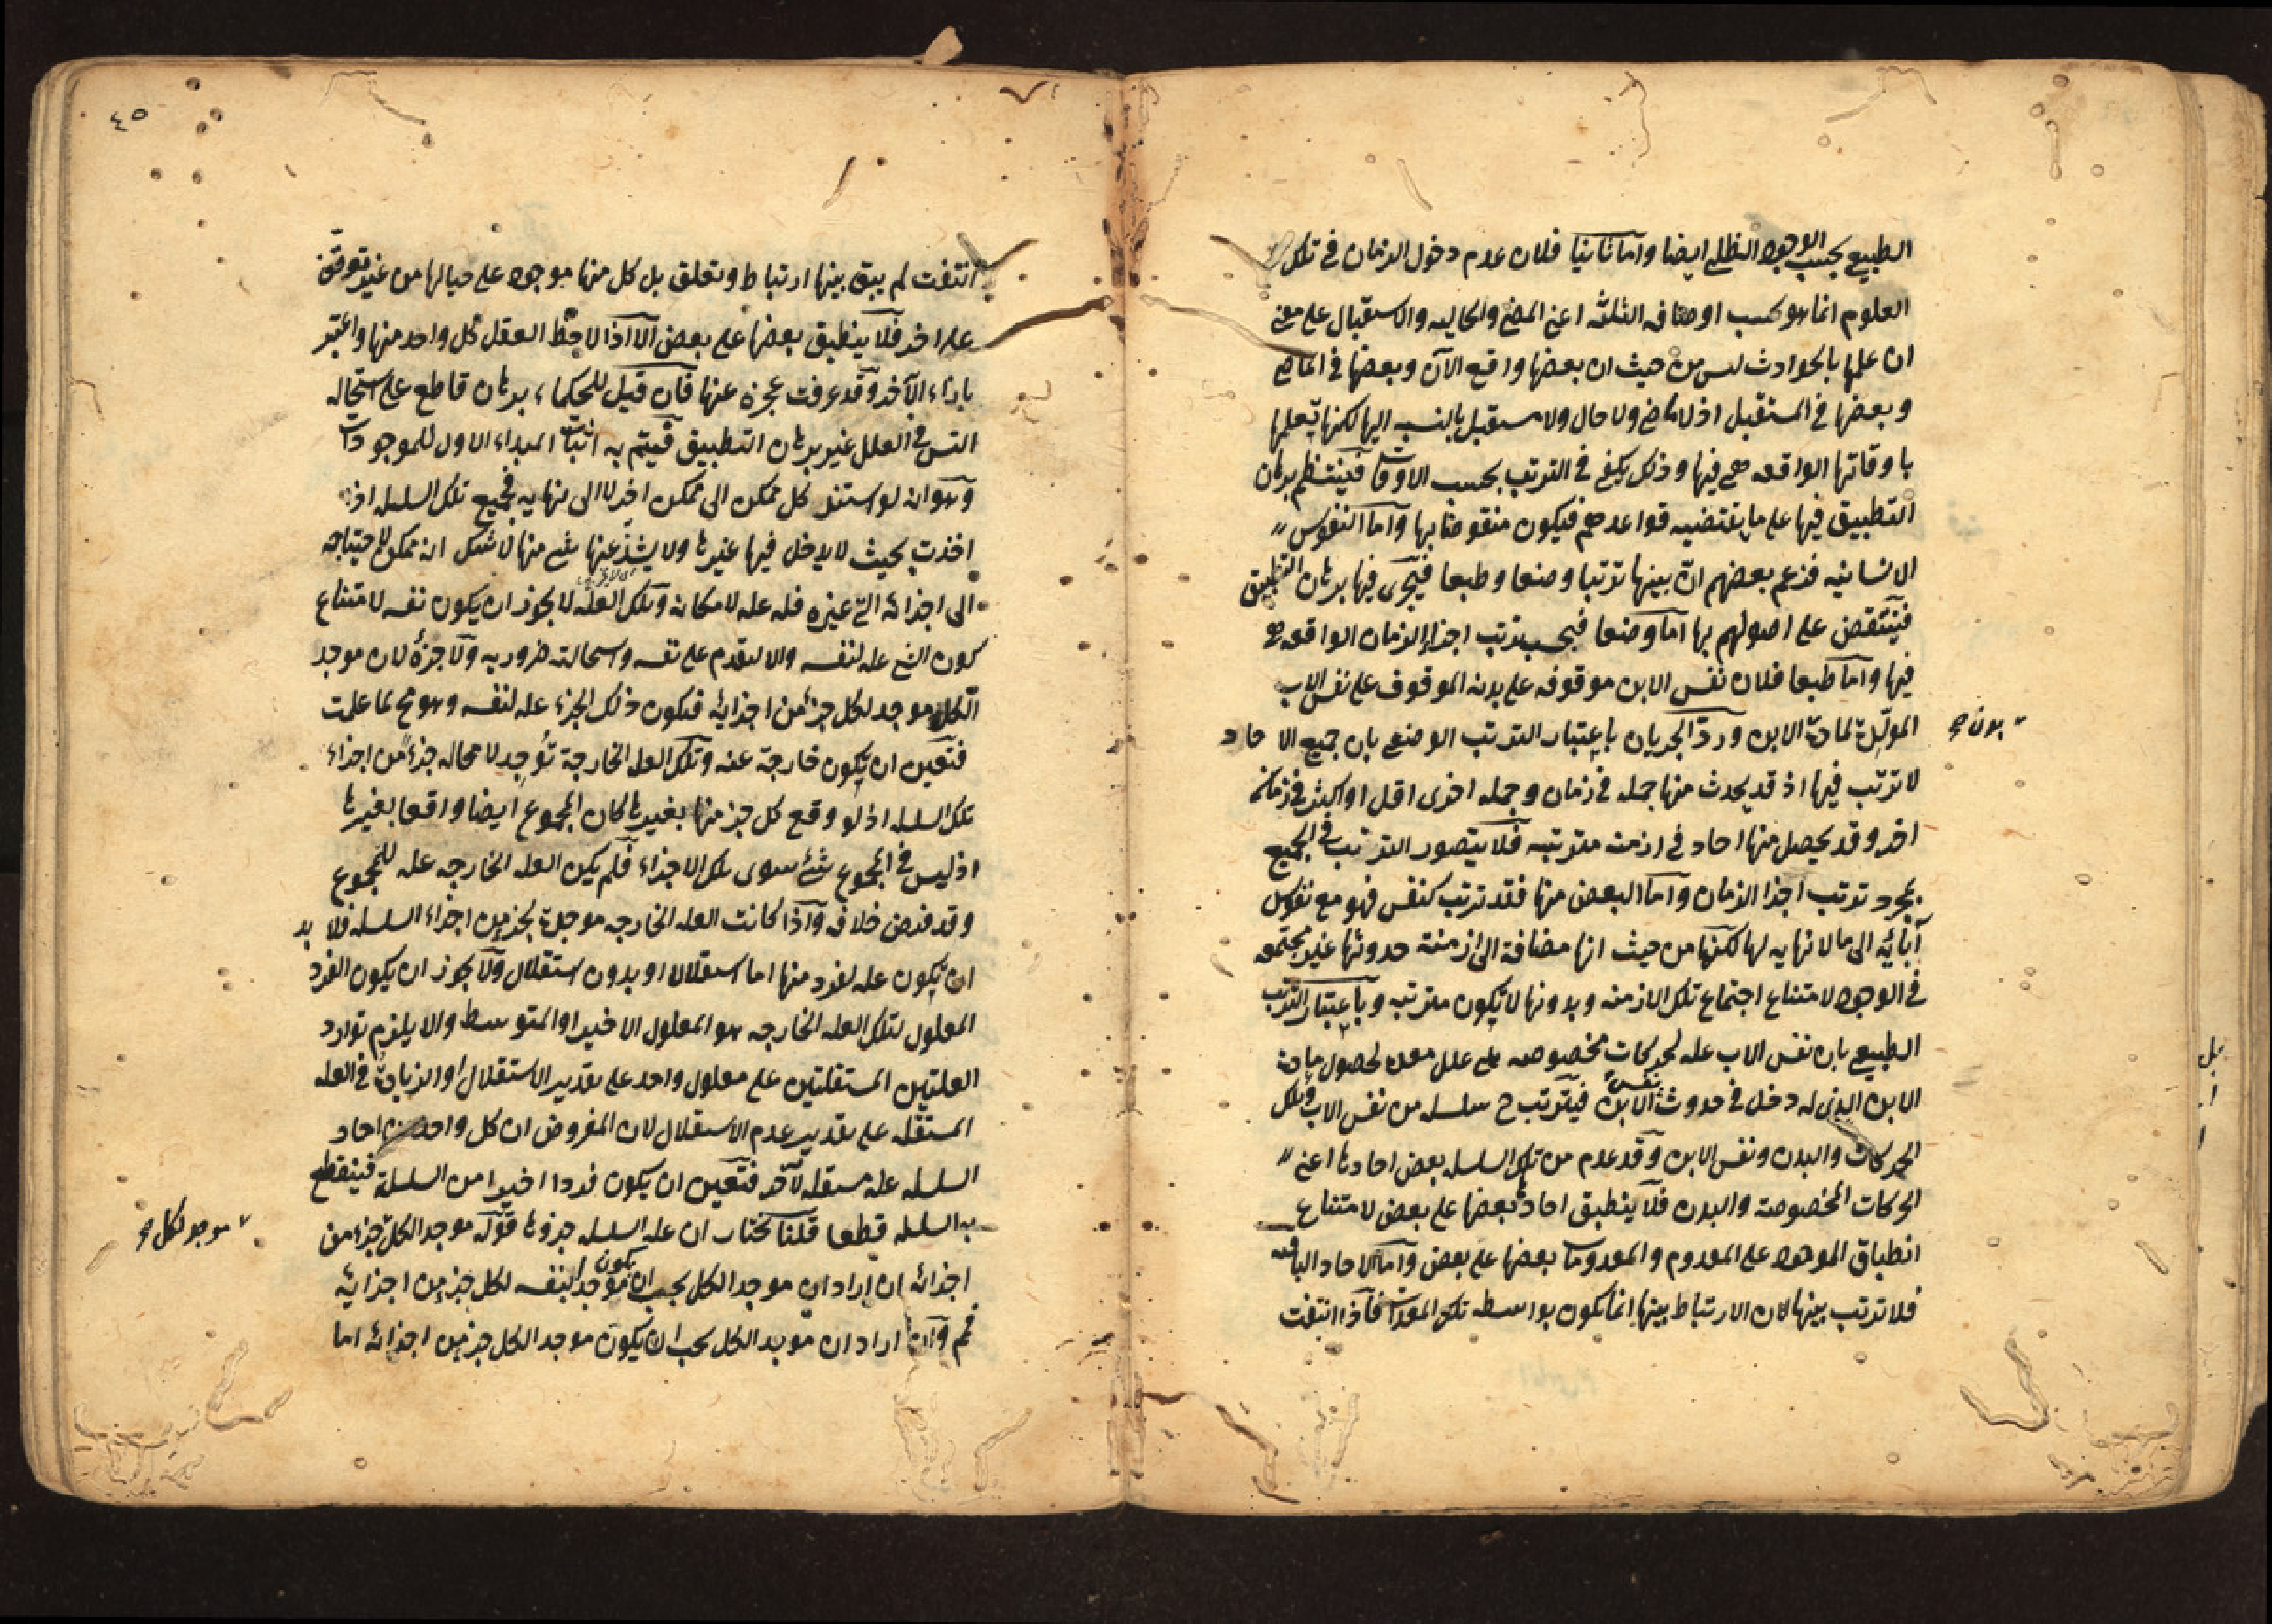 الطبيعي بحسب الوجود الظلي ايضا واما ثانيا فلان عدم دخول الزمان في تلك
العلوم انما هو بحسب اوصافه الثلثة اعني المضي والحاليه والاستقبال على معنى
ان علمها بالحوادث ليس من حيث ان بعضها واقع الآن وبعضها في الماضي
وبعضها في المستقبل اذ لا ماضي ولا حال ولا مستقبل بالنسبه اليها لكنها تعلمها
باوقاتها الواقعه هي فيها وذلك يكفي في الترتب بحسب الاوقات فينتظم برهان
التطبيق فيها على ما يقتضيه قواعدهم فيكون منقوضا بها واما النفوس
الانسانيه فزعم بعضهم ان بينها ترتبا وضعا وطبعا فيجري فيها برهان التطبيق
فينتقض على اصولهم بها اما وضعا فبحسب ترتب اجزاء الزمان الواقعه هي
فيها واما طبعا فلان نفس الابن موقوفه على بدنه الموقوف على نفس الاب
المولدة لمادة الابن ورد الجريان باعتبار الترتب الوضعي بان جميع الاحاد
لا ترتب فيها اذ قد يحدث منها جمله في زمان وجمله اخرى اقل او اكثر في زمان
اخر وقد يحصل منها احاد في ازمنه مترتبه فلا يتصور الترتب في الجميع
بمجرد ترتب اجزا الزمان واما البعض منها فقد ترتب كنفس فهو مع نفوس
آبائه الى ما لا نهايه لها لكنها من حيث انها مضافة الى ازمنة حدوثها غير مجتمعه
في الوجود لامتناع اجتماع تلك الازمنه وبدونها لا تكون مترتبه وباعتبار الترتب
الطبيعي بان نفس الاب عله لحركات مخصوصه هي علل معده لحصول مادة
الابن الذي له دخل في حدوث نفس الابن فيترتب ح سلسله من نفس الاب وتلك
الحركات والبدن ونفس الابن وقد عدم من تلك السلسله بعض احادها اعني
الحركات المخصوصة والبدن فلا ينطبق احادها بعضها على بعض لامتناع
انطباق الموجود على المعدوم والمعدومات بعضها على بعض واما الاحاد الباقيه
فلا ترتب بينها لان الارتباط بينها انما يكون بواسطه تلك المعدات فاذا انتفت
بدن صح
٤٥
انتفت لم يبق بينها ارتباط وتعلق بل كل منها موجود على حيالها من غير توقف
على اخر فلا ينطبق بعضها على بعض الا اذا لاحظ العقل كل واحد منها واعتبر
بازاء الآخر وقد عرفت عجزه عنها فان قيل للحكماء برهان قاطع على استحاله
التس في العلل غير برهان التطبيق فيتم به اثبات المبداء الاول للموجودات
وهو انه لو استند كل ممكن الى ممكن اخر لا الى نهايه فجميع تلك السلسله اذا
اخذت بحيث لا يدخل فيها غيرها ولا يشذ عنها شي منها لا شك انه ممكن لاحتياجه
الى اجزائه التي غيره فله عله لامكانه وتلك العله لا يجوز ان يكون نفسه لامتناع
كون الشي عله لنفسه والا لتقدم على نفسه واستحالته ضروريه ولا جزؤه لان موجد
الكل موجد لكل جزء من اجزايه فيكون ذلك الجزء عله لنفسه وهو مح لما علمت
فتعين ان يكون خارجة عنه وتلك العله الخارجة توجد لا محاله جزءا من اجزاء
تلك السلسله اذ لو وقع كل جزء منها بغيرها كان المجموع ايضا واقعا بغيرها
اذ ليس في المجموع شئ سوى تلك الاجزاء فلم يكن العله الخارجه عله للمجموع
وقد فرض خلافه واذا كانت العله الخارجه موجدة لجزء من اجزاء السلسله فلا بد
ان يكون عله لفرد منها اما استقلالا او بدون استقلال ولا يجوز ان يكون الفرد
المعلول لتلك العله الخارجه هو المعلول الاخير او المتوسط والا يلزم توارد
العلتين المستقلتين على معلول واحد على تقدير الاستقلال او الزيادة في العله
المستقله على تقدير عدم الاستقلال لان المفروض ان كل واحد من احاد
السلسله عله مستقله لآخر فتعين ان يكون فردا اخيرا من السلسلة فينقطع
به السلسله قطعا قلنا نختار ان عله السلسله جزؤها قوله موجد الكل جزء من
اجزائه ان اراد ان موجد الكل يجب ان يكون موجدا بنفسه لكل جزء من اجزايه
فمم وان اراد ان موجد الكل يجب ان يكون موجد الكل جزء من اجزائه اما
موجد لكل صح